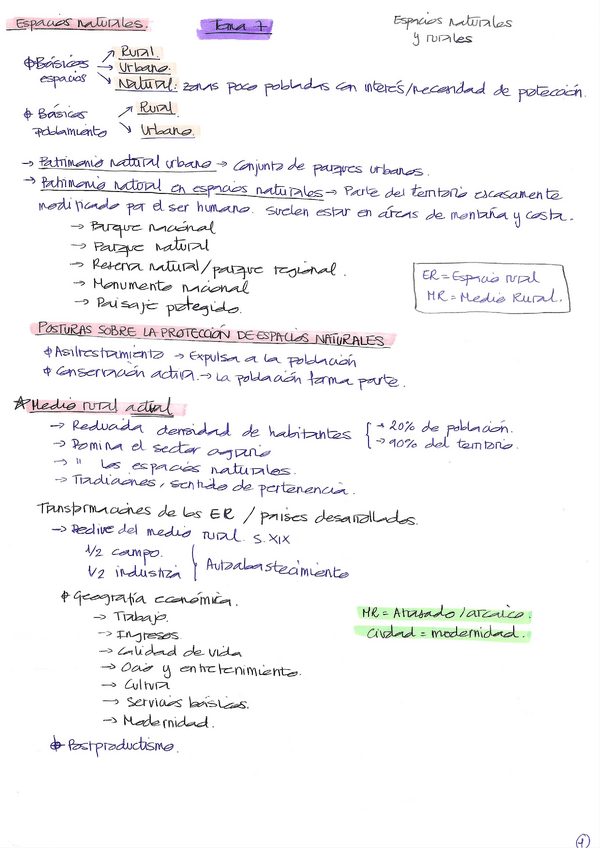 Espacios naturales.
Tema 7
Espacios naturales
y rurales
Básicos espacios → Rural.
→ Urbano.
→ Natural: zonas poco pobladas con interés/necesidad de protección.
Básicos Poblamiento → Rural.
→ Urbano.
→ Patrimonio natural urbano → Conjunto de parques urbanos.
→ Patrimonio natural en espacios naturales → Parte del territorio escasamente
modificado por el ser humano. Suelen estar en áreas de montaña y costa.
→ Parque nacional
→ Parque natural
→ Reserva natural/parque regional.
→ Monumento nacional
→ Paisaje protegido.
ER = Espacio rural
MR = Medio Rural.
POSTURAS SOBRE LA PROTECCIÓN DE ESPACIOS NATURALES
Asilvestramiento → Expulsa a la población
Conservación activa. → La población forma parte.
Medio rural actual
→ Reducida densidad de habitantes { → 20% de población.
→ 90% del territorio.
→ Domina el sector agrario
→ " los espacios naturales.
→ Tradiciones, sentido de pertenencia.
Transformaciones de los ER / países desarrollados.
→ Declive del medio rural. S. XIX
1/2 campo.
1/2 industria } Autoabastecimiento
Geografía económica.
→ Trabajo.
→ Ingresos
→ Calidad de vida
→ Ocio y entretenimiento.
→ Cultura
→ Servicios básicos.
→ Modernidad.
MR = Atrasado / arcaico.
Ciudad = modernidad.
Postproductismo.
1